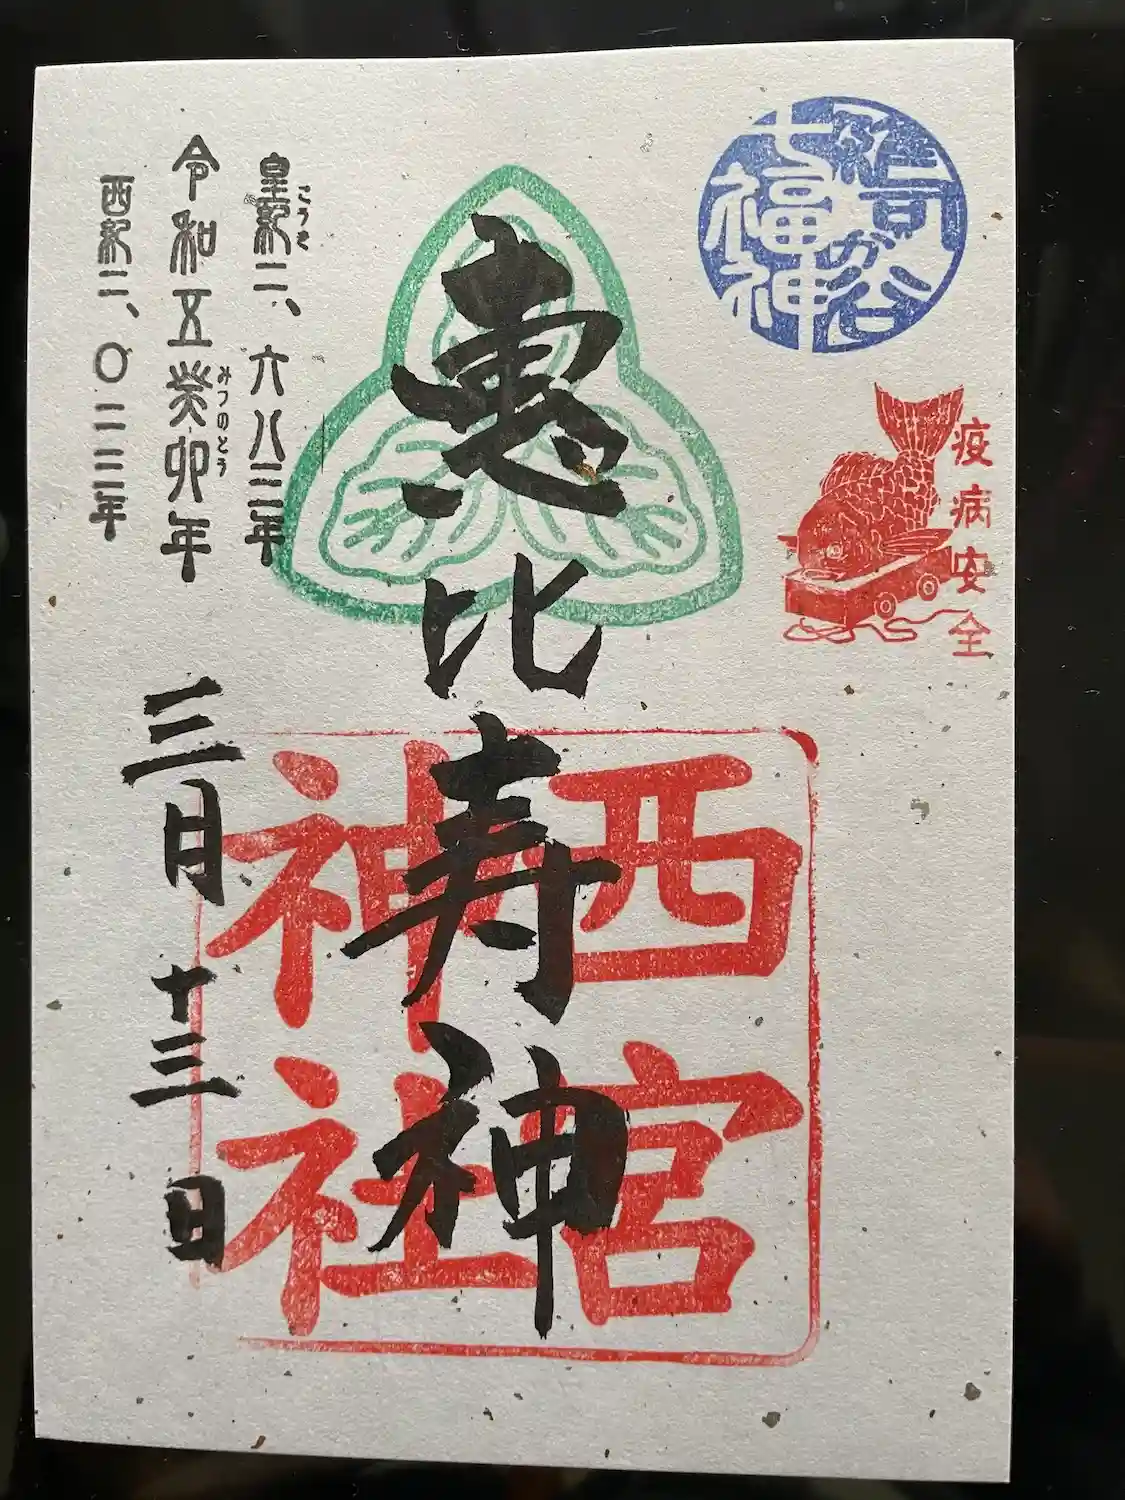 司が谷
七福神
疫病安全
惠比寿神
西宮
神社
皇紀二、六八三年
こうき
令和五癸卯年
みづのとう
三月十三日
西紀二、〇二三年